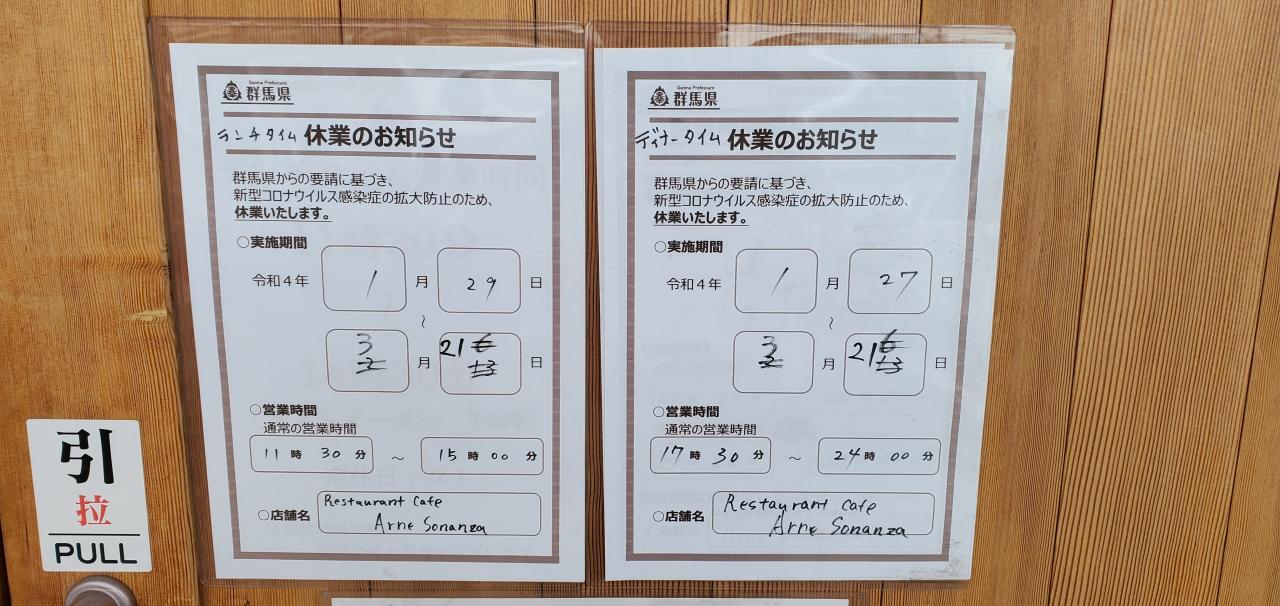 Gunma Prefecture
群馬県
ランチタイム 休業のお知らせ
群馬県からの要請に基づき、
新型コロナウイルス感染症の拡大防止のため、
休業いたします。
○実施期間
令和4年 1 月 29 日
~
3 2 月 21 6 13 日
○営業時間
通常の営業時間
11 時 30 分 ~ 15 時 00 分
○店舗名 Restaurant Cafe
Arne Sonanza
Gunma Prefecture
群馬県
ディナータイム 休業のお知らせ
群馬県からの要請に基づき、
新型コロナウイルス感染症の拡大防止のため、
休業いたします。
○実施期間
令和4年 1 月 27 日
~
3 2 月 21 6 13 日
○営業時間
通常の営業時間
17 時 30 分 ~ 24 時 00 分
○店舗名 Restaurant Cafe
Arne Sonanza
引
拉
PULL